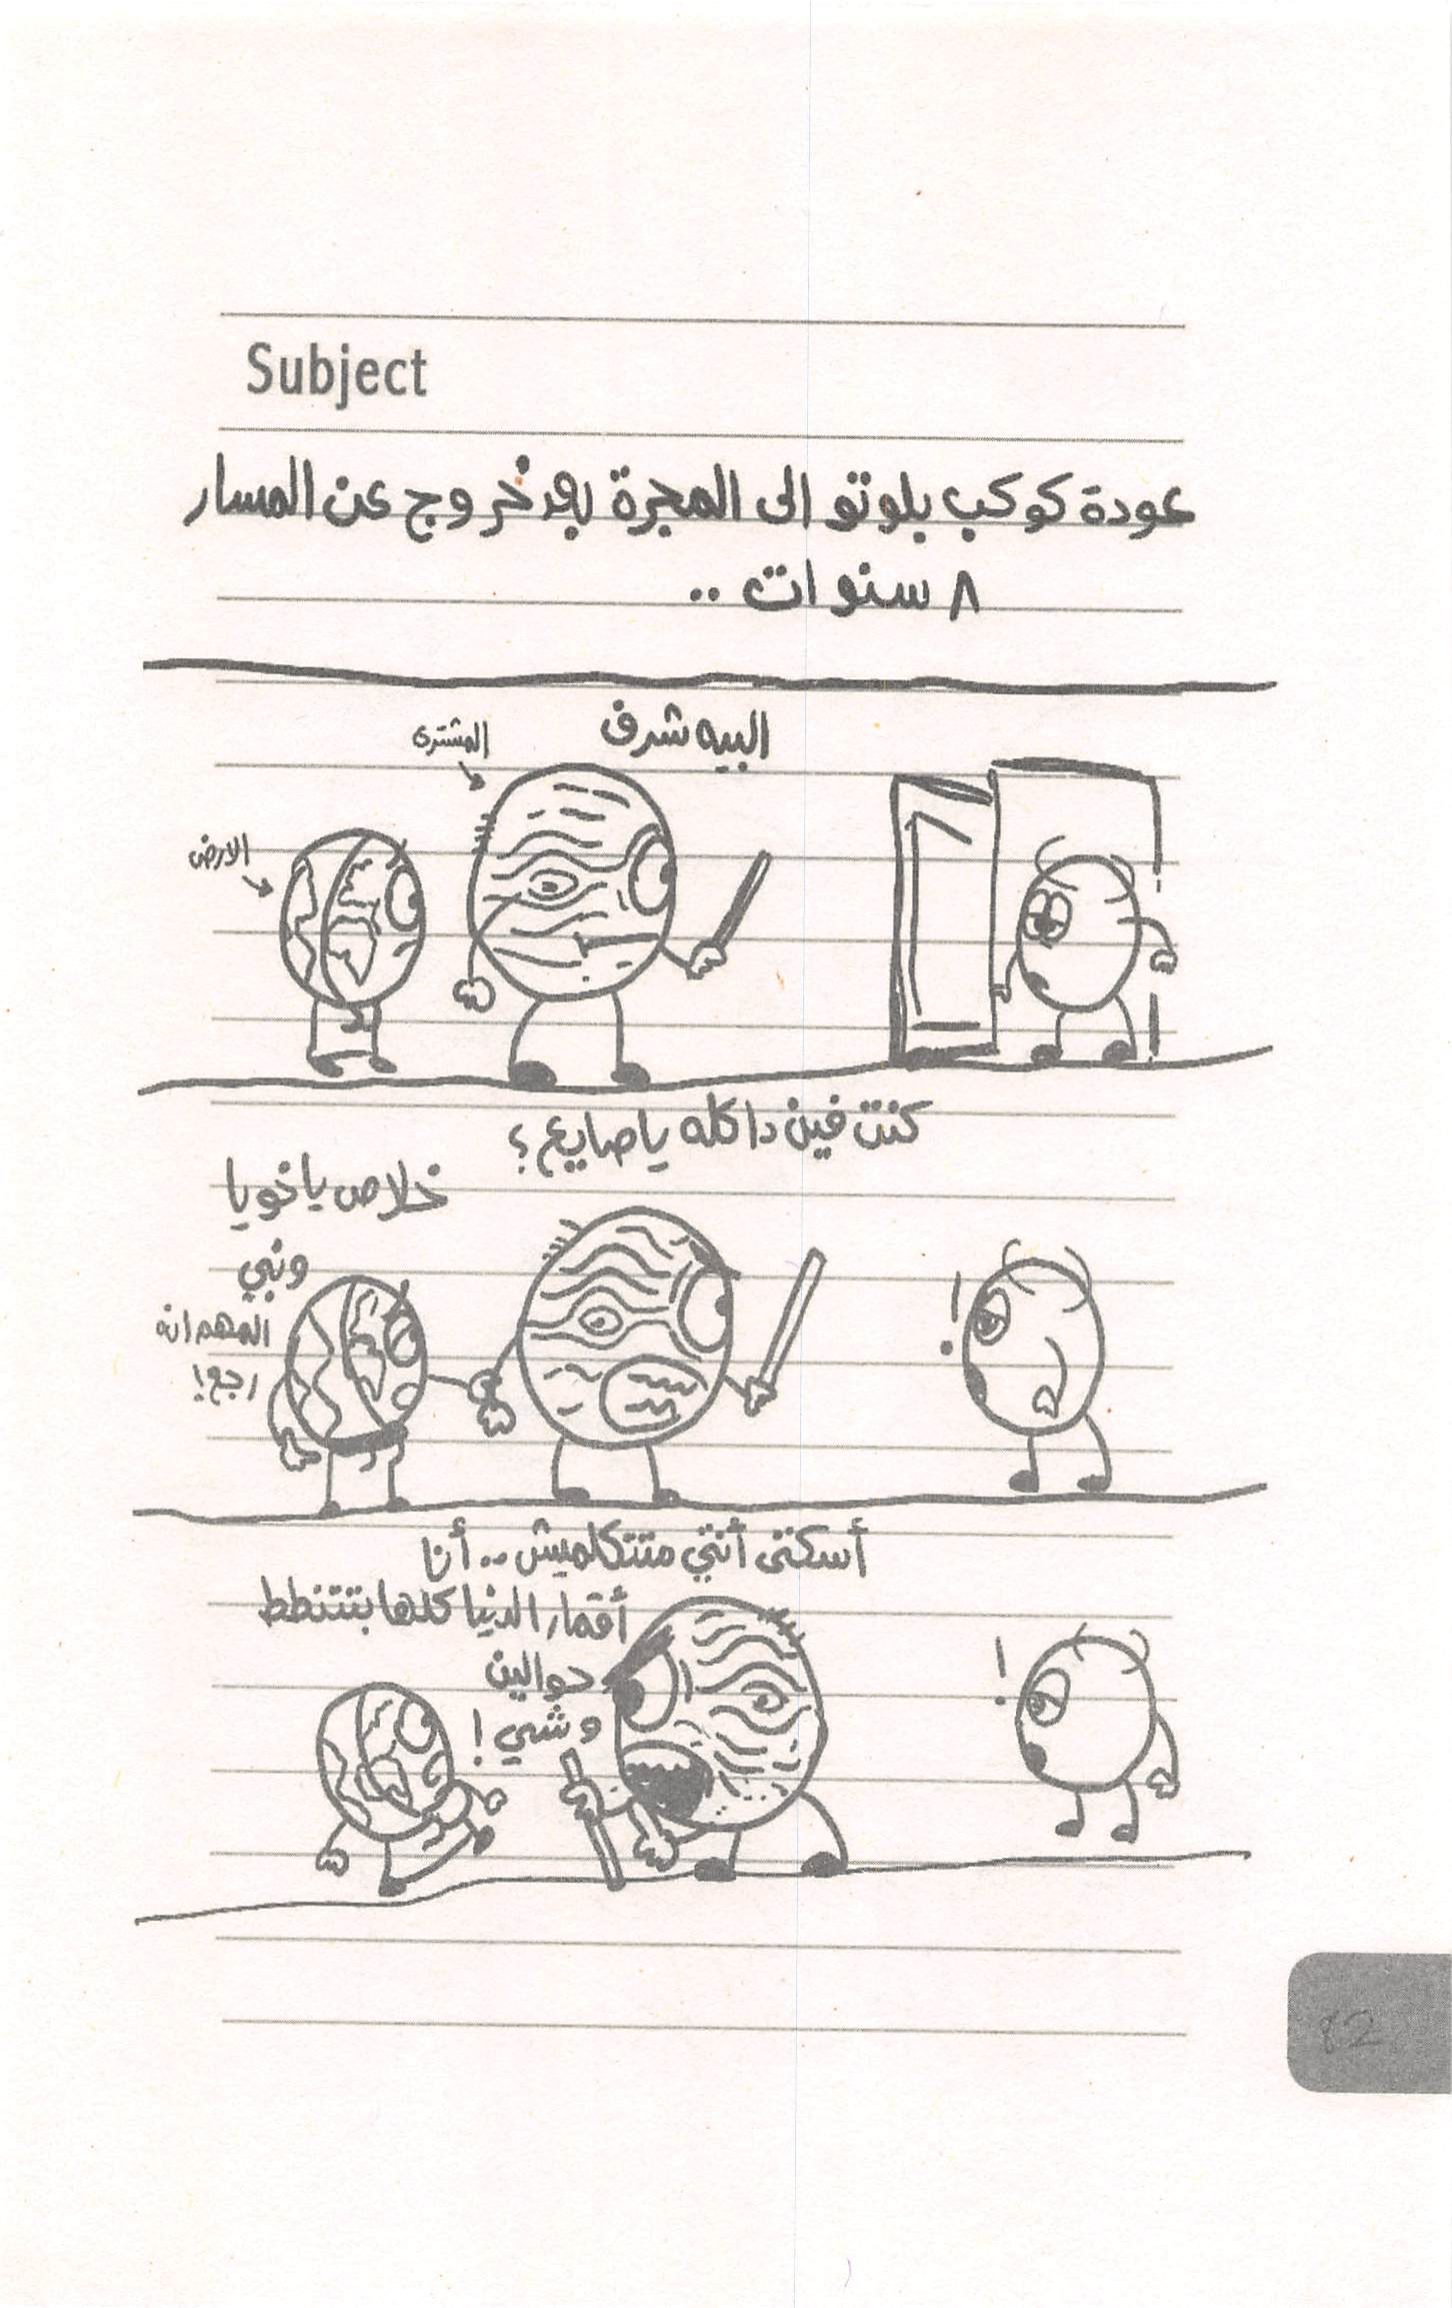 Subject
عودة كوكب بلوتو الى المجرة بعد خروج عن المسار
٨ سنوات ..
البيه شرف
المشترى
الارض
كنت فين دا كله يا صايع ؟
خلاص ياخويا
ونبي
المهم انه
رجع !
أسكتى أنتي متتكلميش .. أنا
أقمار الدنيا كلها بتتنطط
حوالين
وشي !
82